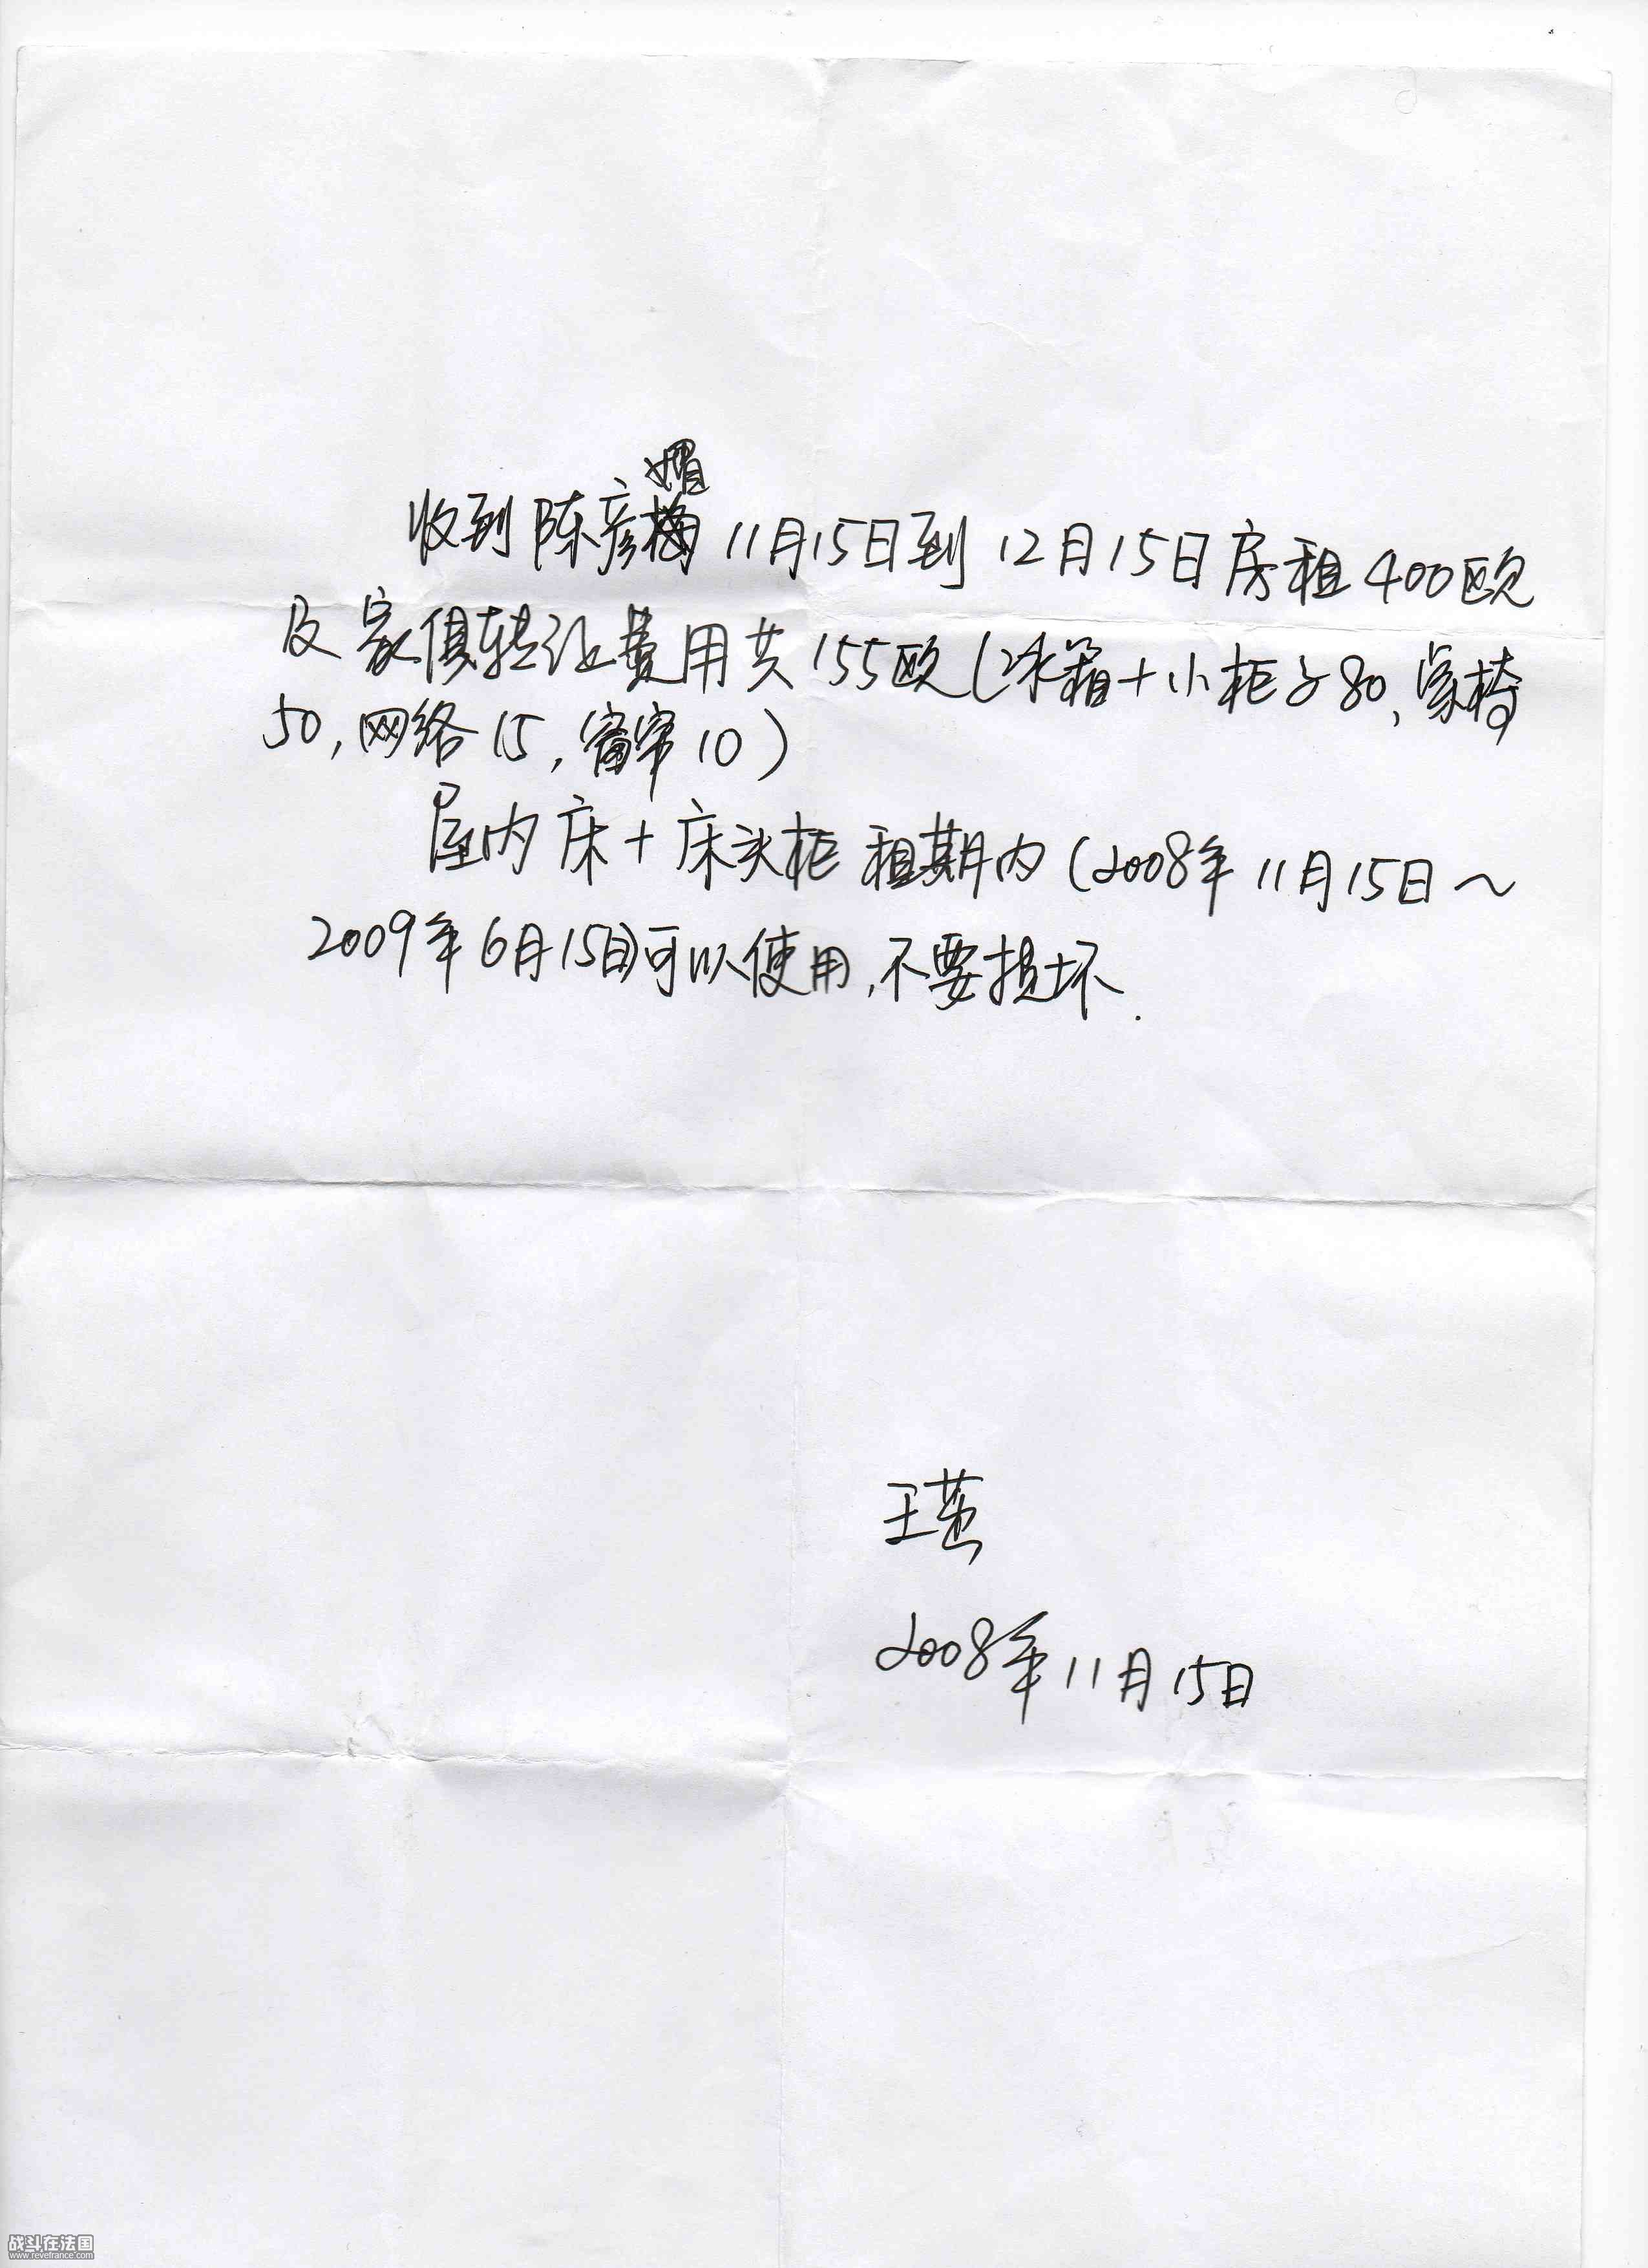 收到陈彦媚11月15日到12月15日房租400欧
及家俱转让费用共155欧(冰箱+小柜子80,桌椅
50,网络15,窗帘10)
屋内床+床头柜租期内(2008年11月15日~
2009年6月15日)可以使用,不要损坏.
王
2008年11月15日
战斗在法国
www.revefrance.com